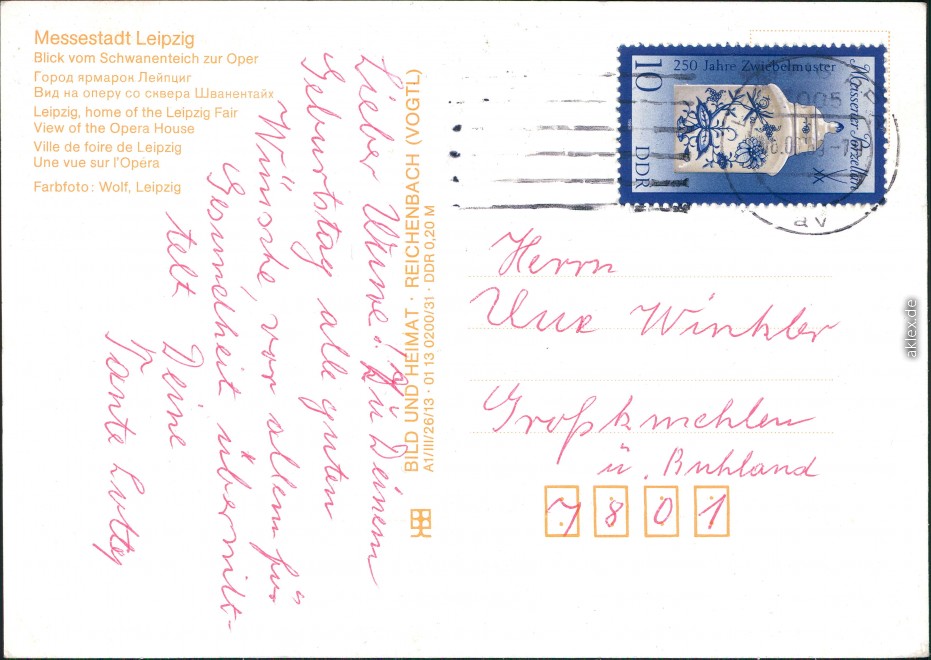 Messestadt Leipzig
Blick vom Schwanenteich zur Oper
Город ярмарок Лейпциг
Вид на оперу со сквера Шванентайх
Leipzig, home of the Leipzig Fair
View of the Opera House
Ville de foire de Leipzig
Une vue sur l'Opéra
Farbfoto: Wolf, Leipzig
Lieber Uwe! Zu Deinem
Geburtstag alle guten
Wünsche, vor allem für
Gesundheit übermit-
telt Deine
Tante Lotte
BILD UND HEIMAT · REICHENBACH (VOGTL)
A1/III/26/13 · 01 13 0200/31 · DDR 0,20 M
250 Jahre Zwiebelmuster
Meissener Porzellan
10
DDR
Herrn
Uwe Winkler
Großkmehlen
ü. Ruhland
7801
aklex.de